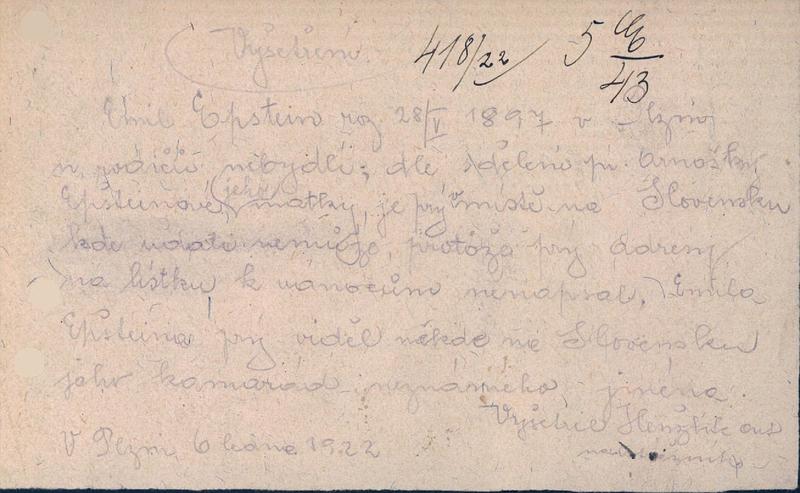 Vyšetření 418/22 5 43
Emil Epstein roz 28/V 1897 v
u rodičů nebydlí; dle sdělení pí. Arnošky
Epsteinové, jeho matky, je prý v místě na Slovensku
kde udati nemůže, protože prý adresy
na lístku k vánocům nenapsal. Emila
Epsteina prý viděl někde na Slovensku
jeho kamarád neznámého jména.
Vyšetřil
V Plzni, 6 ledna 1922